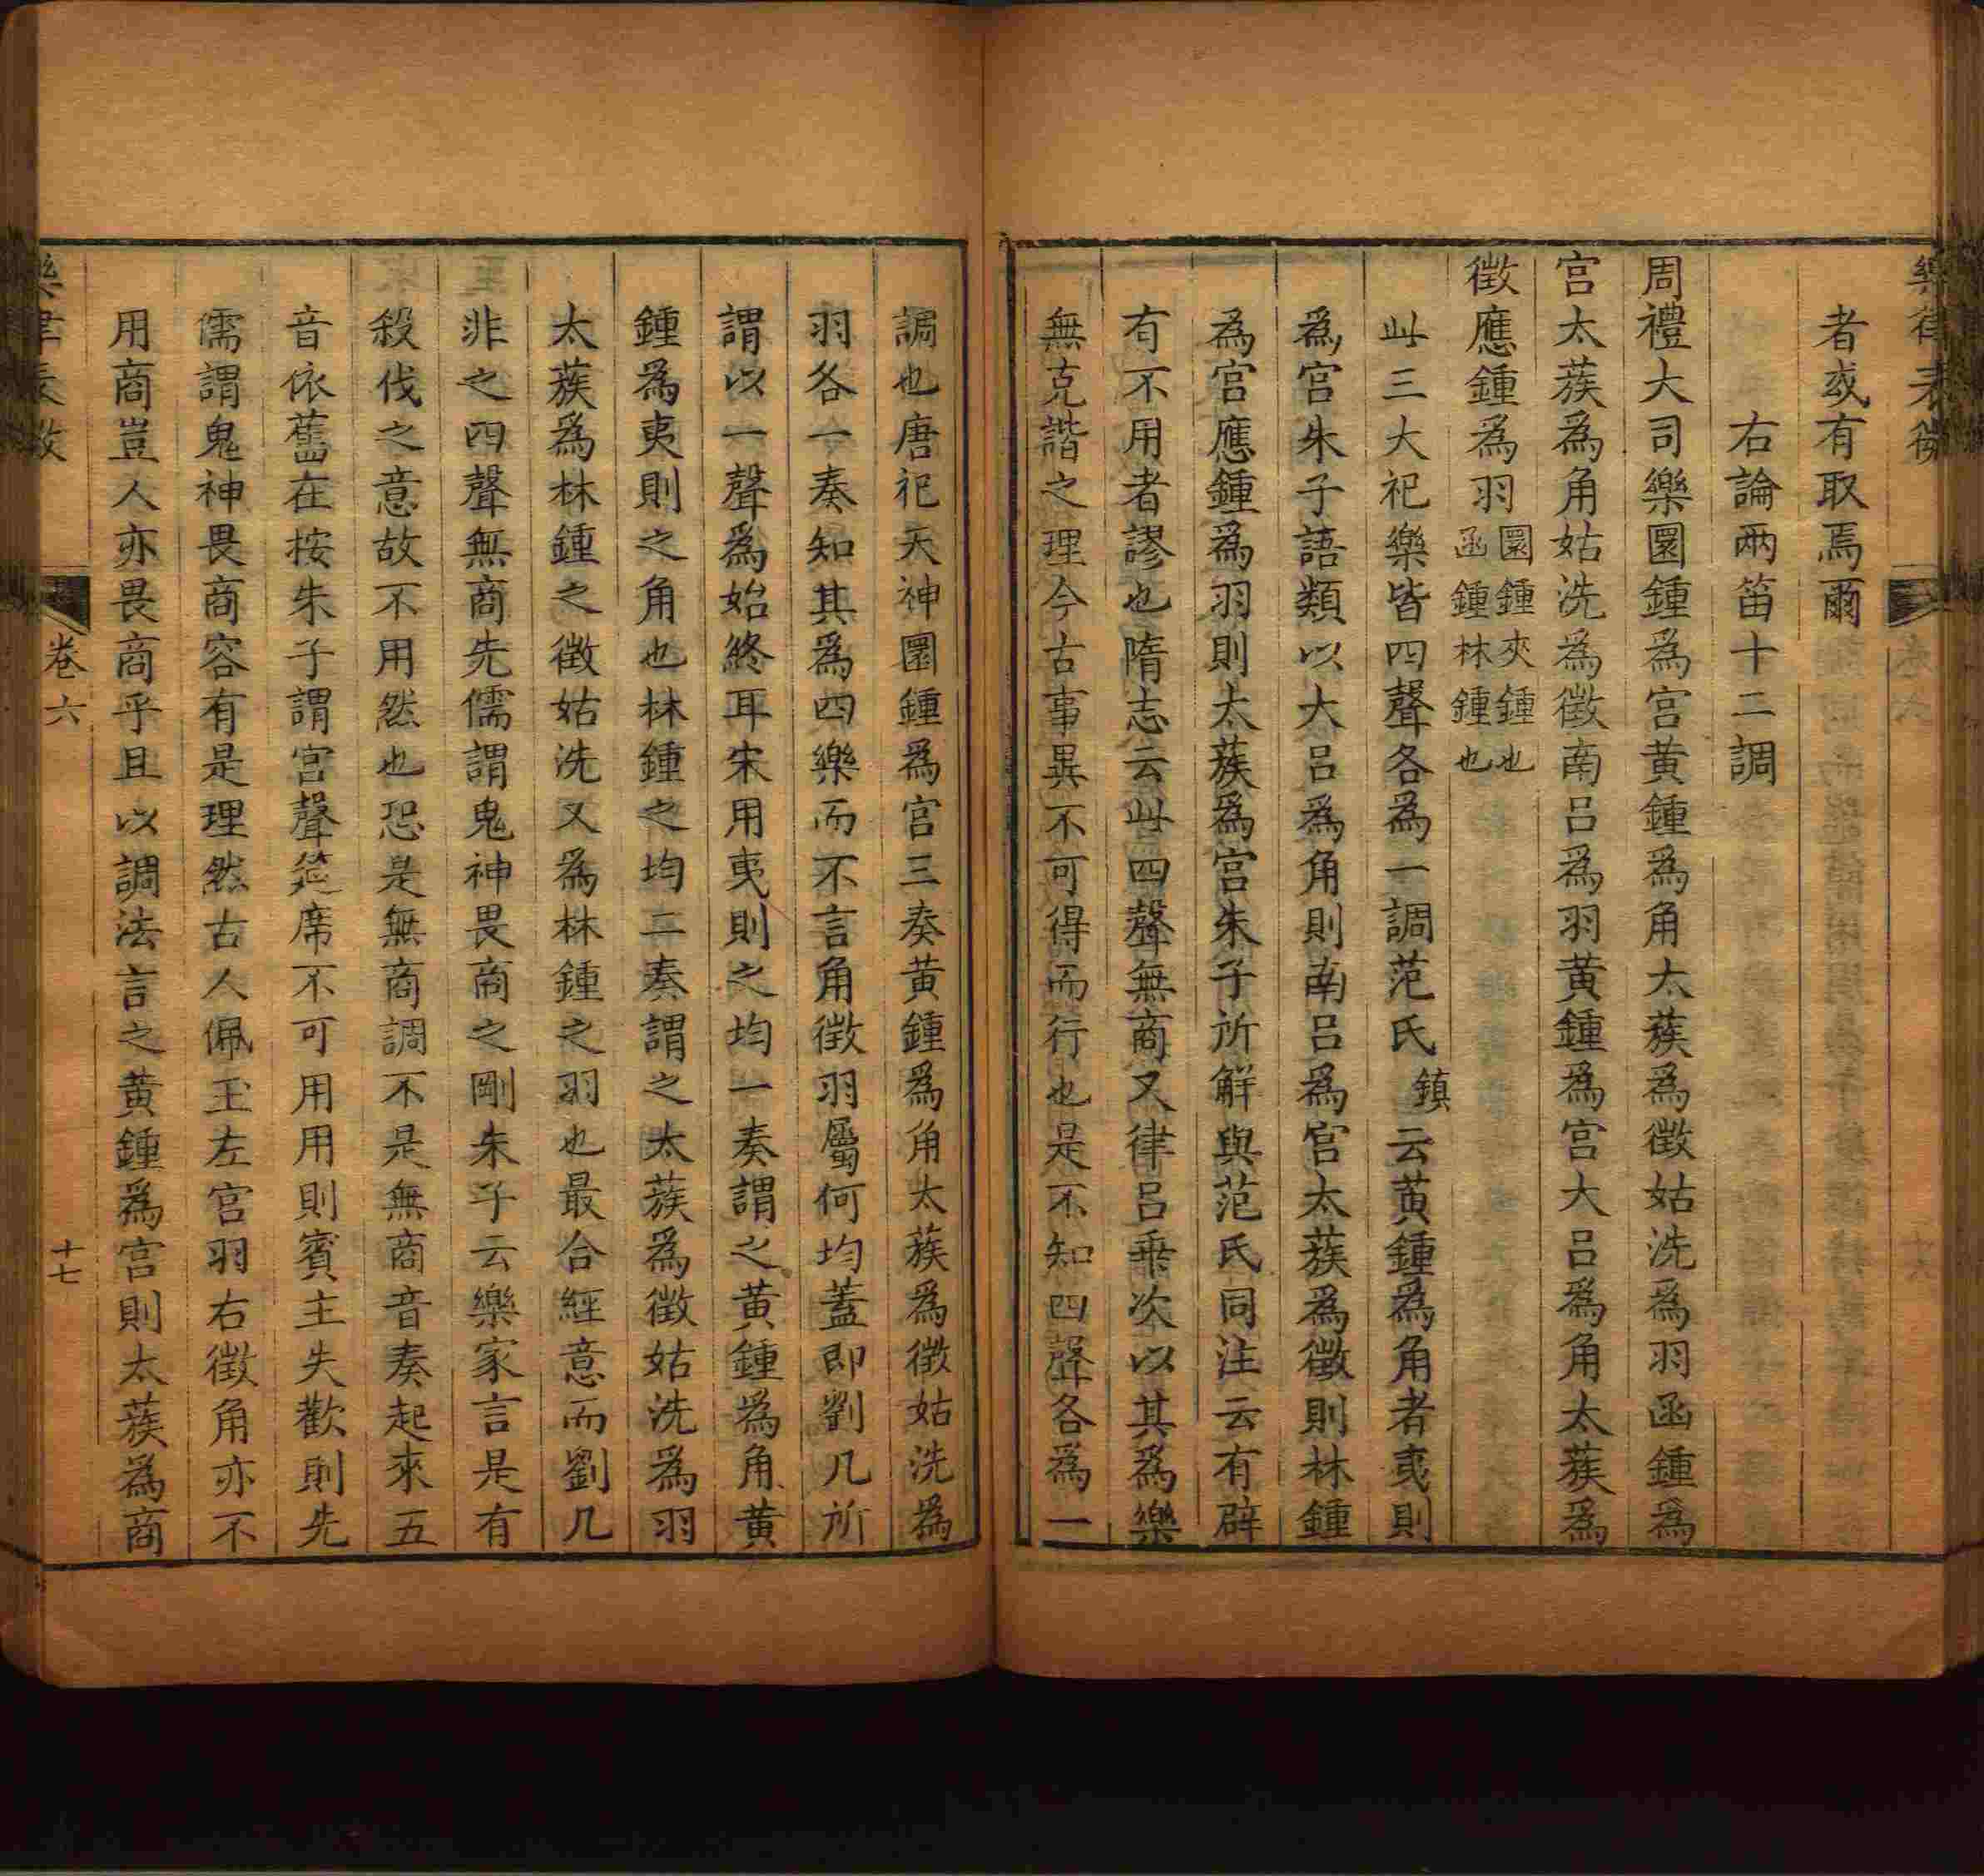 樂律表微
者或有取焉爾
右論兩笛十二調
周禮大司樂圜鍾爲宮黃鍾爲角太蔟爲徵姑洗爲羽函鍾爲
宮太蔟爲角姑洗爲徵南呂爲羽黃鍾爲宮大呂爲角太蔟爲
徵應鍾爲羽圜鍾夾鍾也函鍾林鍾也
此三大祀樂皆四聲各爲一調范氏鎮云黃鍾爲角者夷則
爲宮朱子語類以大呂爲角則南呂爲宮太蔟爲徵則林鍾
爲宮應鍾爲羽則太蔟爲宮朱子所解與范氏同注云有辟
有不用者謬也隋志云此四聲無商又律呂乗次以其爲樂
無克諧之理今古事異不可得而行也是不知四聲各爲一
調也唐祀天神圜鍾爲宮三奏黃鍾爲角太蔟爲徵姑洗爲
羽各一奏知其爲四樂而不言角徵羽屬何均蓋即劉几所
謂以一聲爲始終耳宋用夷則之均一奏謂之黃鍾爲角黃
鍾爲夷則之角也林鍾之均二奏謂之太蔟爲徵姑洗爲羽
太蔟爲林鍾之徵姑洗又爲林鍾之羽也最合經意而劉几
非之四聲無商先儒謂鬼神畏商之剛朱子云樂家言是有
殺伐之意故不用然也恐是無商調不是無商音奏起來五
音依舊在按朱子謂宮聲筵席不可用用則賓主失歡則先
儒謂鬼神畏商容有是理然古人佩玉左宮羽右徵角亦不
用商豈人亦畏商乎且以調法言之黃鍾爲宮則太蔟爲商
樂律表微
卷六
十七